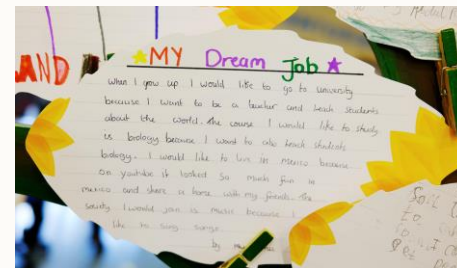 AND
MY Dream Job
when I grow up I would like to go to university
because I want to be a teacher and teach students
about the world. the course I would like to study
is biology because I want to also teach students
biology. I would like to live in mexico because
on youtube it looked so much fun in
mexico and share a home with my friends. the
society I would join is music because I
like to sing songs
by